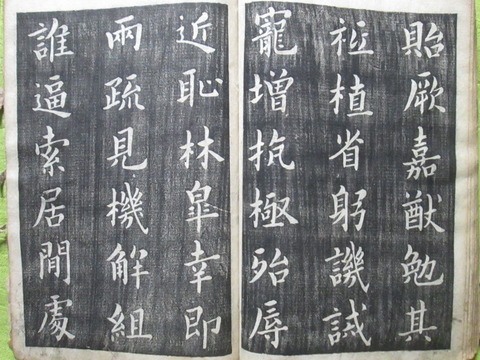 貽厥嘉猷勉其
祗植省躬譏誡
寵增抗極殆辱
近恥林皐幸即
兩疏見機解組
誰逼索居閒處